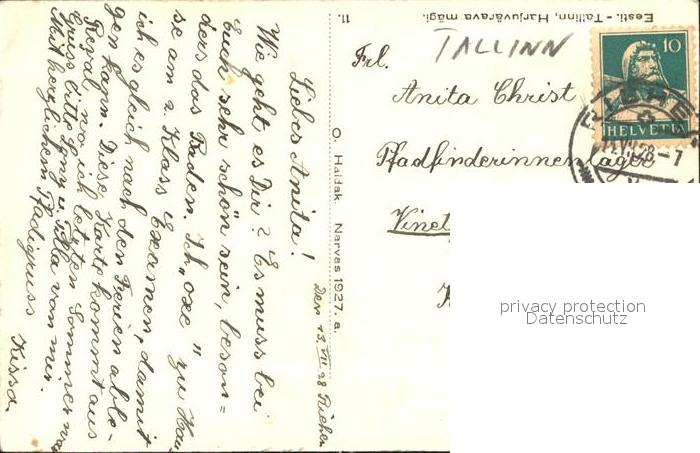 Eesti - Tallinn, Harjuvärava mägi.
11.
TALLINN
10
HELVETIA
RIEHEN
Frl.
Anita Christ
Pfadfinderinnenlager
O. Haidak. Narvas 1927. a.
Den 13. VII 28 Riehen
Liebes Anita!
Wie geht es Dir? Es muss bei
Euch sehr schön sein, beson=
ders das Baden. Ich „oxe" zu Hau
se am 2. Klass Examen, damit
ich es gleich nach den Ferien able-
gen kann. Diese Karte kommt aus
Rigal, wo ich letzten Sommer war
Grüss bitte Lony u. alla von mir.
Mit herzlichem Pfadigruss
Kissa.
privacy protection
Datenschutz